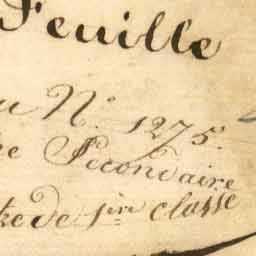 Feuille
u N.° 1275.
Secondaire
de 1ère classe